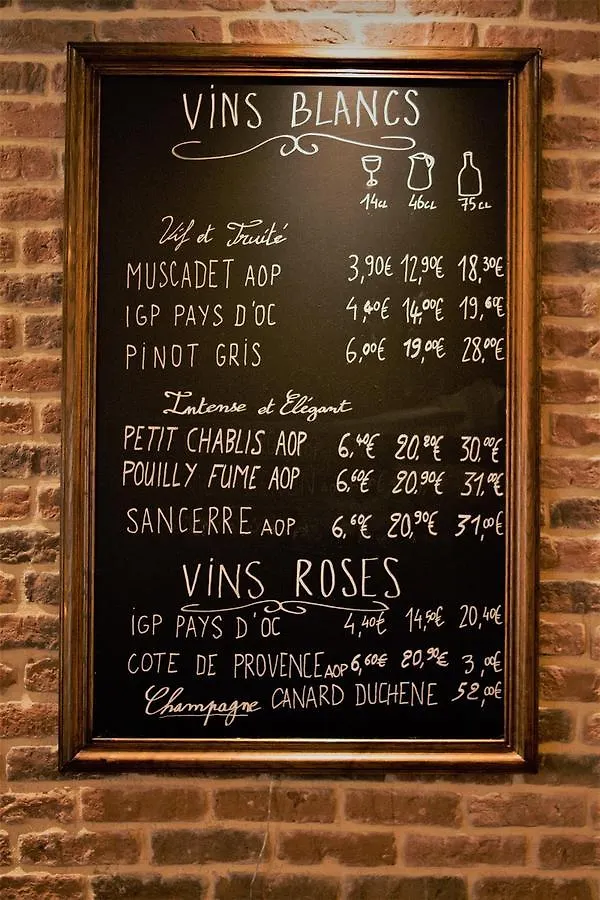 VINS BLANCS
14cL 46cL 75cL
Vif et Fruité
MUSCADET AOP 3,90€ 12,90€ 18,30€
IGP PAYS D'OC 4,40€ 14,00€ 19,60€
PINOT GRIS 6,00€ 19,00€ 28,00€
Intense et Elégant
PETIT CHABLIS AOP 6,40€ 20,20€ 30,00€
POUILLY FUME AOP 6,60€ 20,90€ 31,00€
SANCERRE AOP 6,60€ 20,90€ 31,00€
VINS ROSES
IGP PAYS D'OC 4,40€ 14,50€ 20,40€
COTE DE PROVENCE AOP 6,60€ 20,90€
Champagne CANARD DUCHENE 52,00€